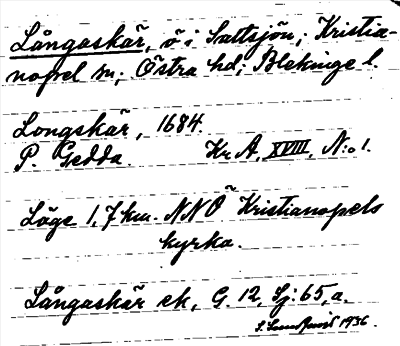 Långaskär, ö i Saltsjön; Kristia-
nopel sn; Östra hd; Blekinge l.
Longskär, 1684.
P. Gedda. Kr. A, XVIII, N:o 1.
Läge 1,7 km. NNÖ Kristianopels
kyrka.
Långaskär ek, G. 12, Sj: 65, a.
S. Lundqvist 1936.